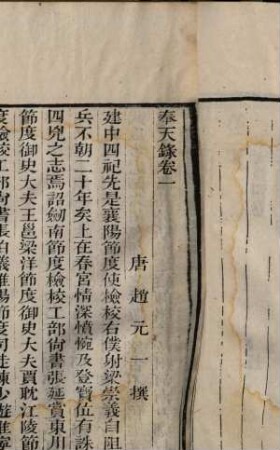 奉天錄卷一
唐趙元一撰
建中四祀先是襄陽節度使檢校右僕射梁崇義自阻
兵不朝二十年矣上在春宮情深憤惋及登寶位有誅
四兇之志焉詔劒南節度檢校工部尙書張延賞東川
節度御史大夫王邕梁洋節度御史大夫賈耽江陵節
度檢校工部尙書張伯儀淮陽節度司徒陳少遊淮寧